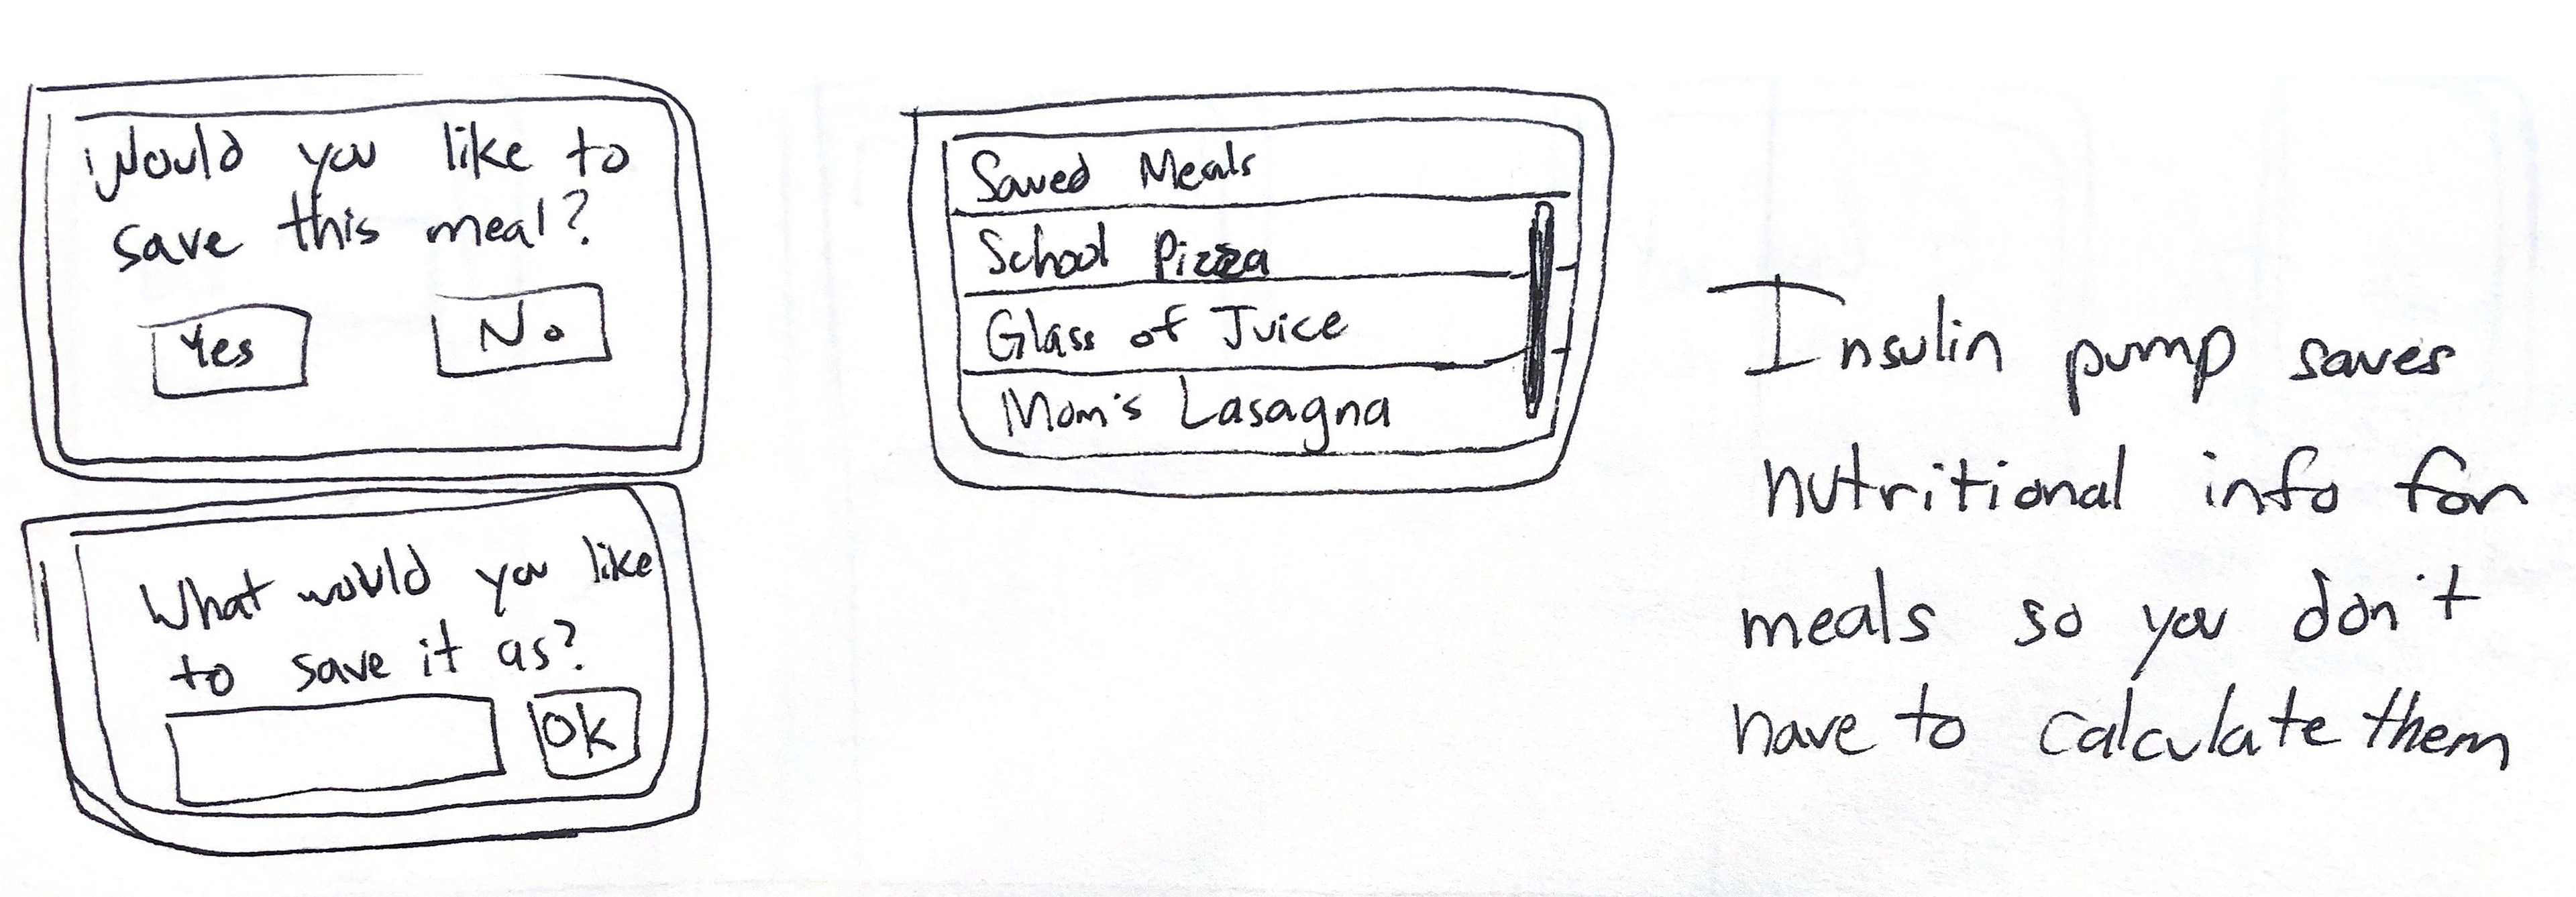 Would you like to
save this meal?
Yes
No
What would you like
to save it as?
Ok
Saved Meals
School Pizza
Glass of Juice
Mom's Lasagna
Insulin pump saves
nutritional info for
meals so you don't
have to calculate them